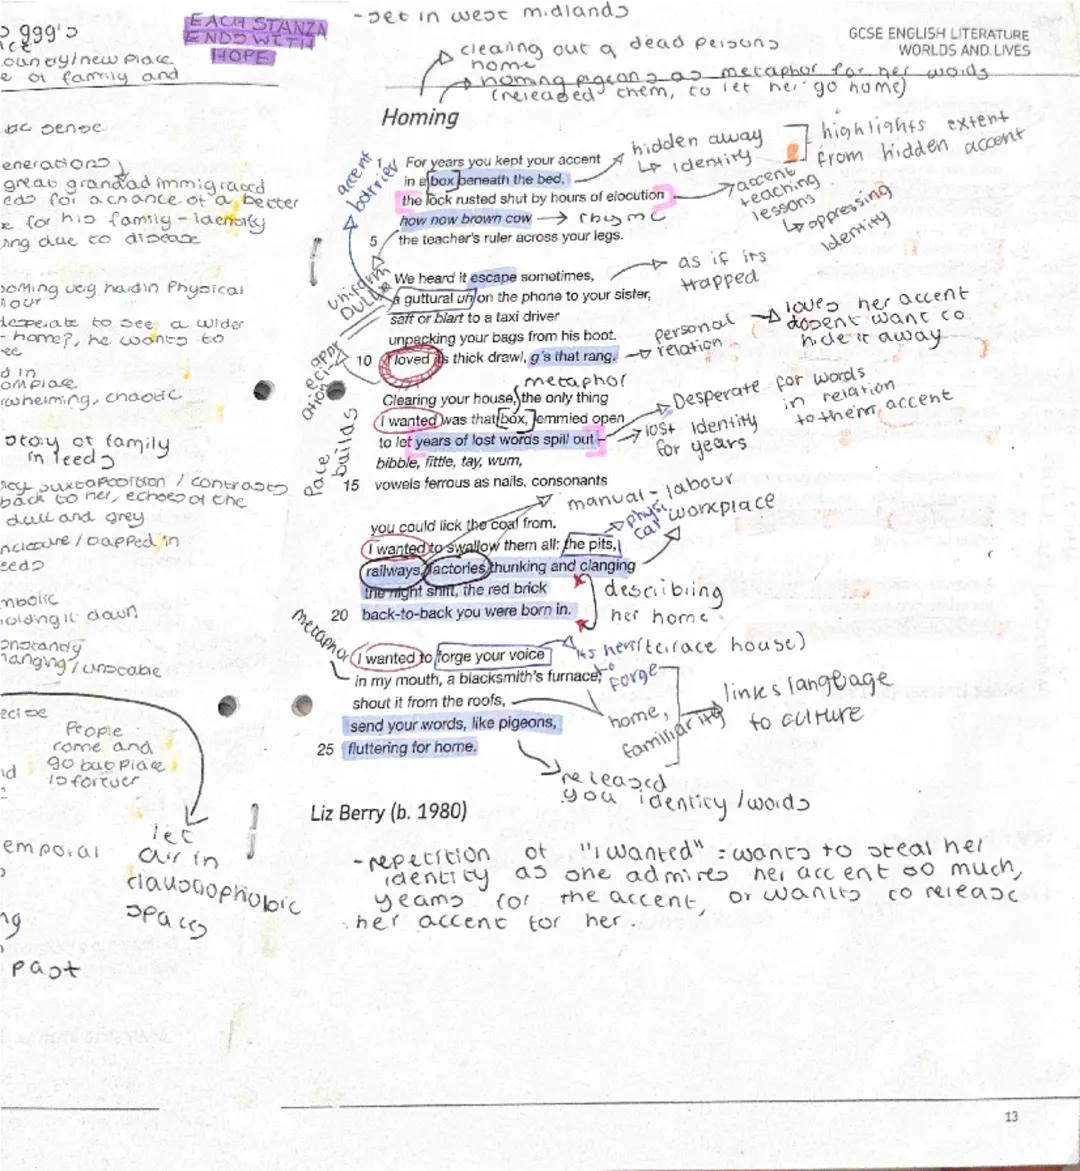 EACH STANZA
ENDS WITH
HOPE
- set in west midlands
GCSE ENGLISH LITERATURE
WORLDS AND LIVES
clearing out a dead persons
home
homing pigeons as metaphor for her words
(released them, to let her go home)
999's
ountry/new place
e of family and
sense
enerations
great grandad immigrated
for a chance of a better
for his family - identity
ing due to disease
desperate to see a wider
- home?, he wants to
whelming, chaotic
story of family
in leeds
juxtaposition / contrasts
back to her, echoes of the
dull and grey
nclosure / trapped in
eeds
mbolic
olding it down
onstantly
hanging / unstable
People
come and
go but place
is forever
emporal
let
air in
claustrophobic
spaces
past
Homing
1 For years you kept your accent
in a box beneath the bed,
the lock rusted shut by hours of elocution
how now brown cow
5 the teacher's ruler across your legs.
We heard it escape sometimes,
a guttural uh on the phone to your sister,
saft or blart to a taxi driver
unpacking your bags from his boot.
10 I loved its thick drawl, g's that rang.
Clearing your house, the only thing
I wanted was that box, jemmied open
to let years of lost words spill out –
bibble, fittle, tay, wum,
15 vowels ferrous as nails, consonants
you could lick the coal from.
I wanted to swallow them all: the pits,
railways, factories thunking and clanging
the night shift, the red brick
20 back-to-back you were born in.
I wanted to forge your voice
in my mouth, a blacksmith's furnace;
shout it from the roofs,
send your words, like pigeons,
25 fluttering for home.
accent
barrier
hidden away
↳ identity
highlights extent
from hidden accent
→ rhyme
accent
teaching
lessons
↳ oppressing
identity
as if its
trapped
personal
relation
loves her accent
dosent want to
hide it away
metaphor
Desperate for words
in relation
to them accent
→ lost identity
for years
Pace
builds
manual - labour
workplace
physical
describing
her home
metaphor
its hers (terrace house)
to
forge
home,
familiarity
links language
to culture
released
you identity / words
Liz Berry (b. 1980)
- repetition of "I wanted" = wants to steal her
identity as one admires her accent so much,
yearns for the accent, or wants to release
her accent for her.
13